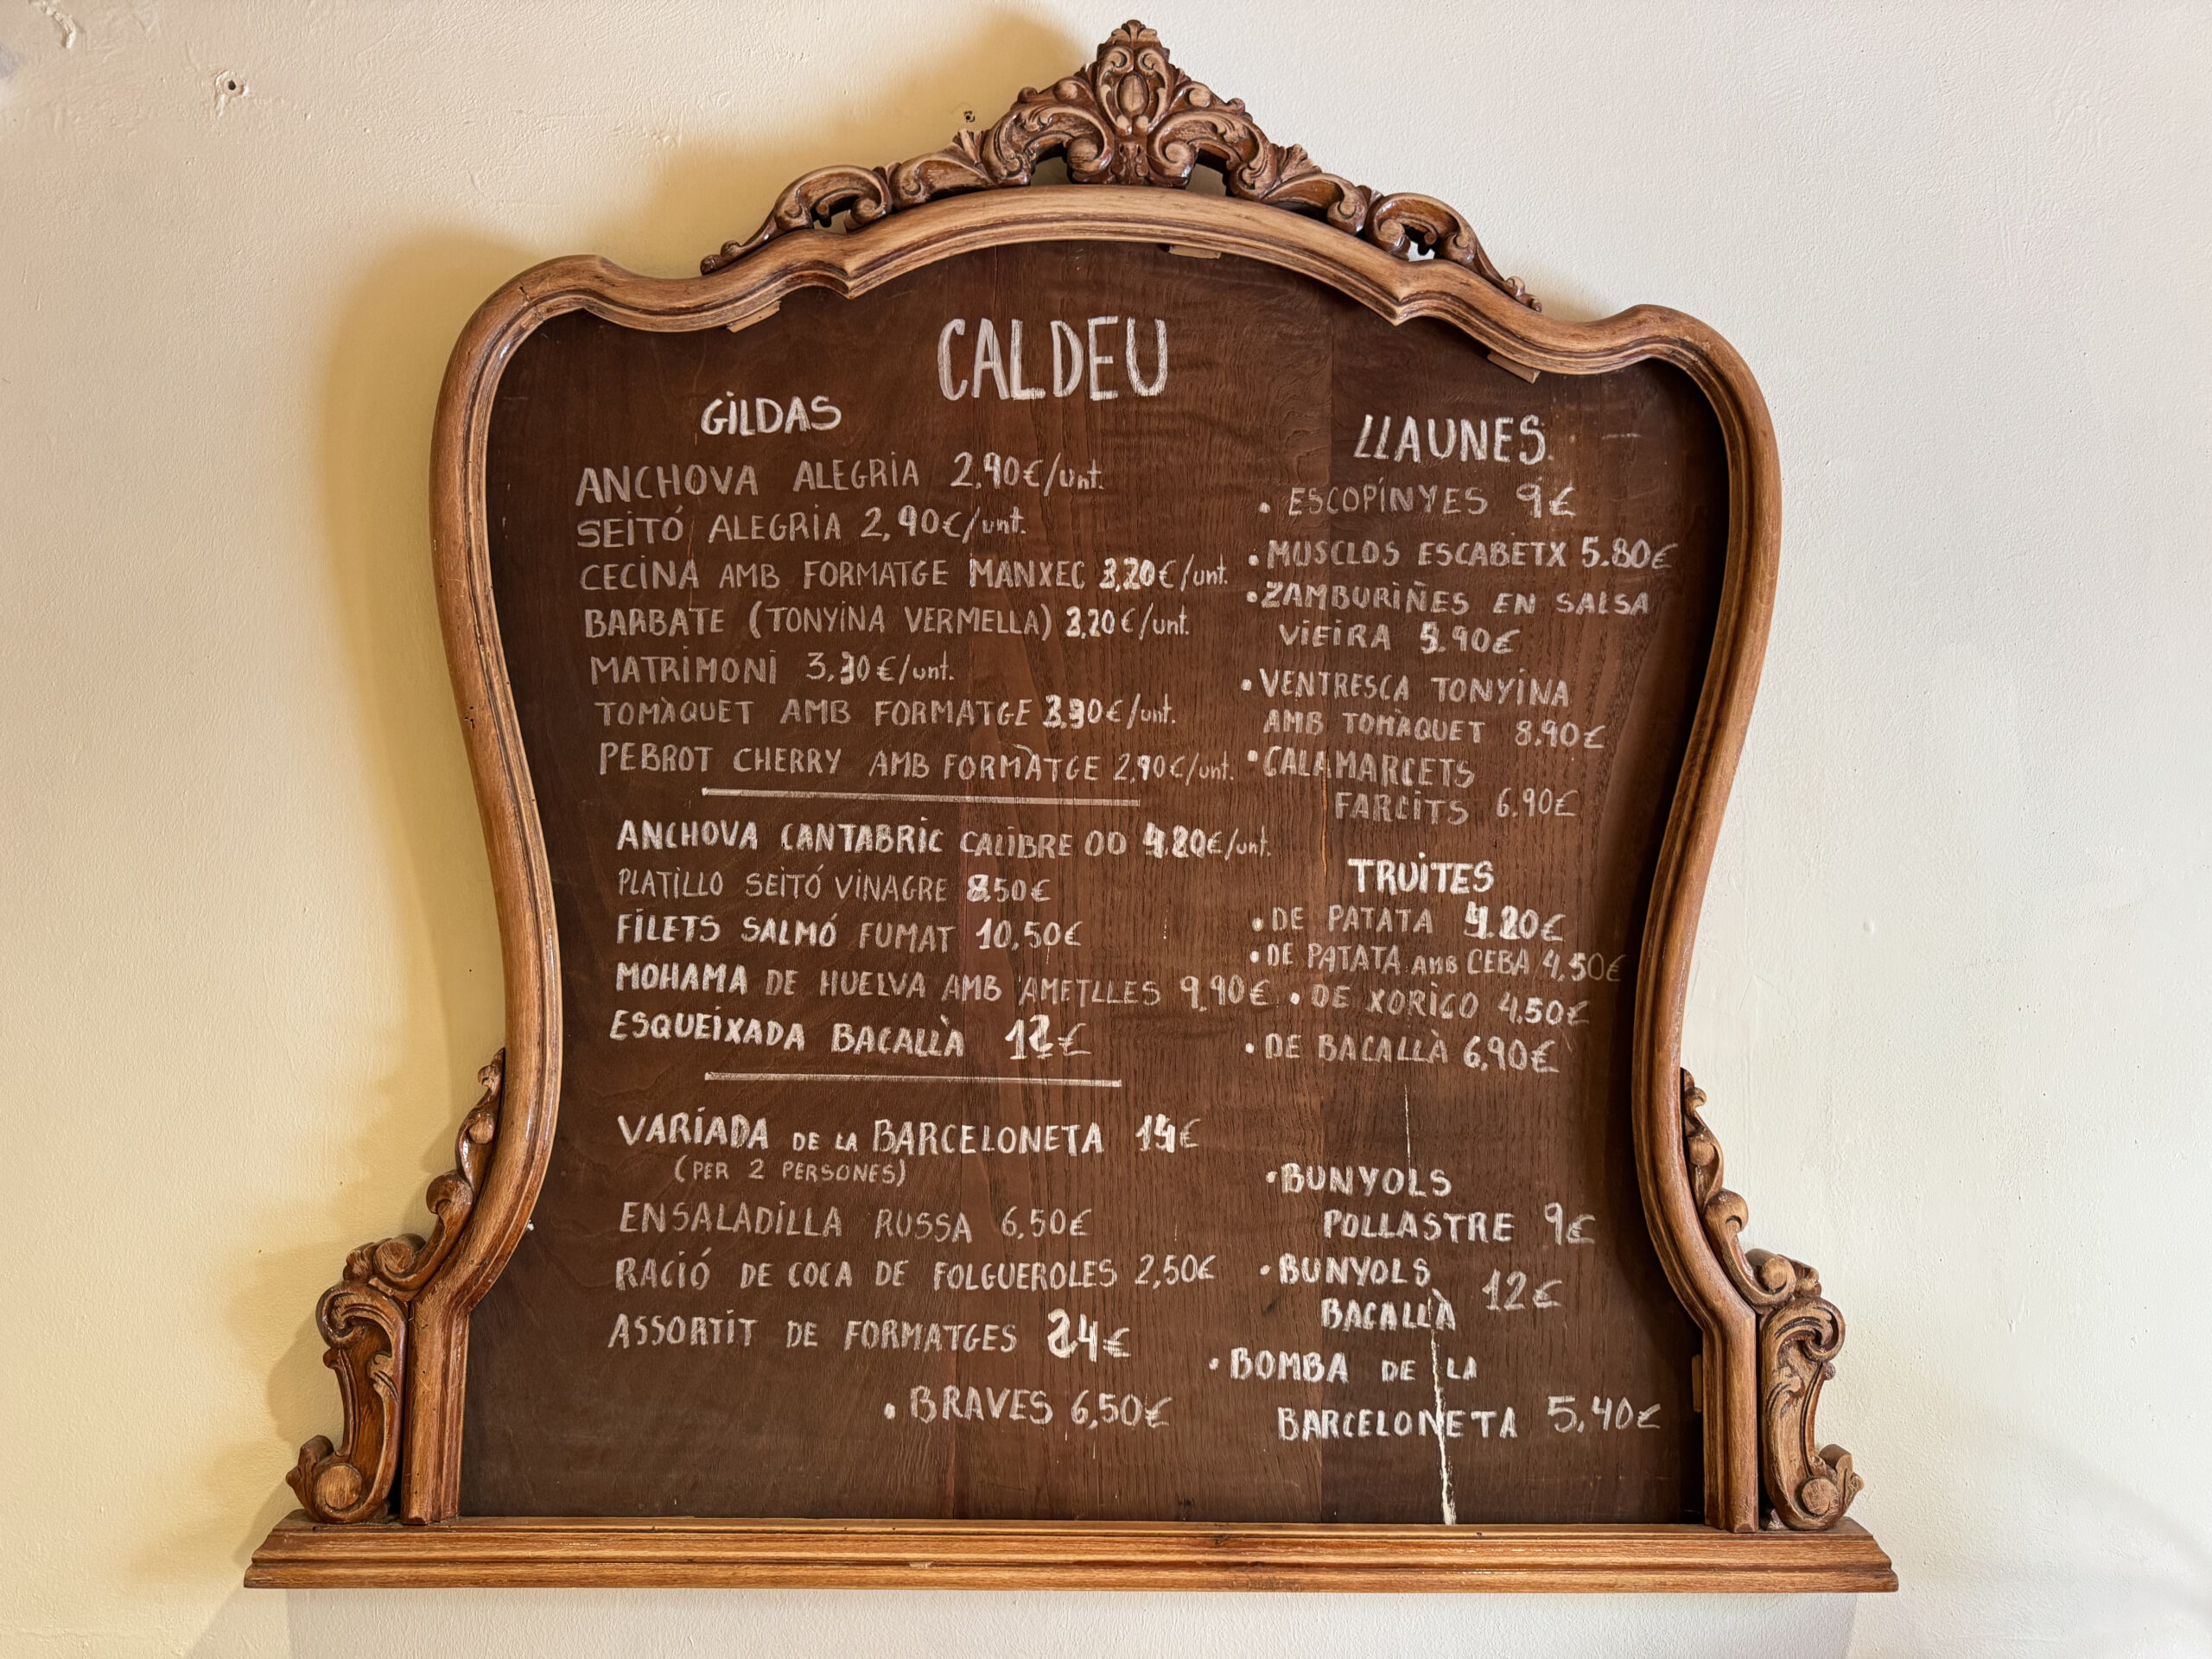 CALDEU
GILDAS
ANCHOVA ALEGRIA 2,90€/unt.
SEITÓ ALEGRIA 2,90€/unt.
CECINA AMB FORMATGE MANXEC 3,20€/unt.
BARBATE (TONYINA VERMELLA) 3,20€/unt.
MATRIMONI 3,30€/unt.
TOMÀQUET AMB FORMATGE 3.30€/unt.
PEBROT CHERRY AMB FORMÀTGE 2,90€/unt.
ANCHOVA CANTABRIC CALIBRE OO 4.20€/unt.
PLATILLO SEITÓ VINAGRE 8.50€
FILETS SALMÓ FUMAT 10,50€
MOHAMA DE HUELVA AMB AMETLLES 9,90€
ESQUEIXADA BACALLÀ 12€
VARIADA DE LA BARCELONETA 14€
(PER 2 PERSONES)
ENSALADILLA RUSSA 6,50€
RACIÓ DE COCA DE FOLGUEROLES 2,50€
ASSORTIT DE FORMATGES 24€
• BRAVES 6,50€
LLAUNES
• ESCOPINYES 9€
• MUSCLOS ESCABETX 5.80€
• ZAMBURIÑES EN SALSA
VIEIRA 5.90€
• VENTRESCA TONYINA
AMB TOMÀQUET 8,90€
• CALAMARCETS
FARCITS 6.90€
TRUITES
• DE PATATA 4.20€
• DE PATATA AMB CEBA 4,50€
• DE XORIÇO 4,50€
• DE BACALLÀ 6,90€
• BUNYOLS
POLLASTRE 9€
• BUNYOLS
BACALLÀ 12€
• BOMBA DE LA
BARCELONETA 5,40€